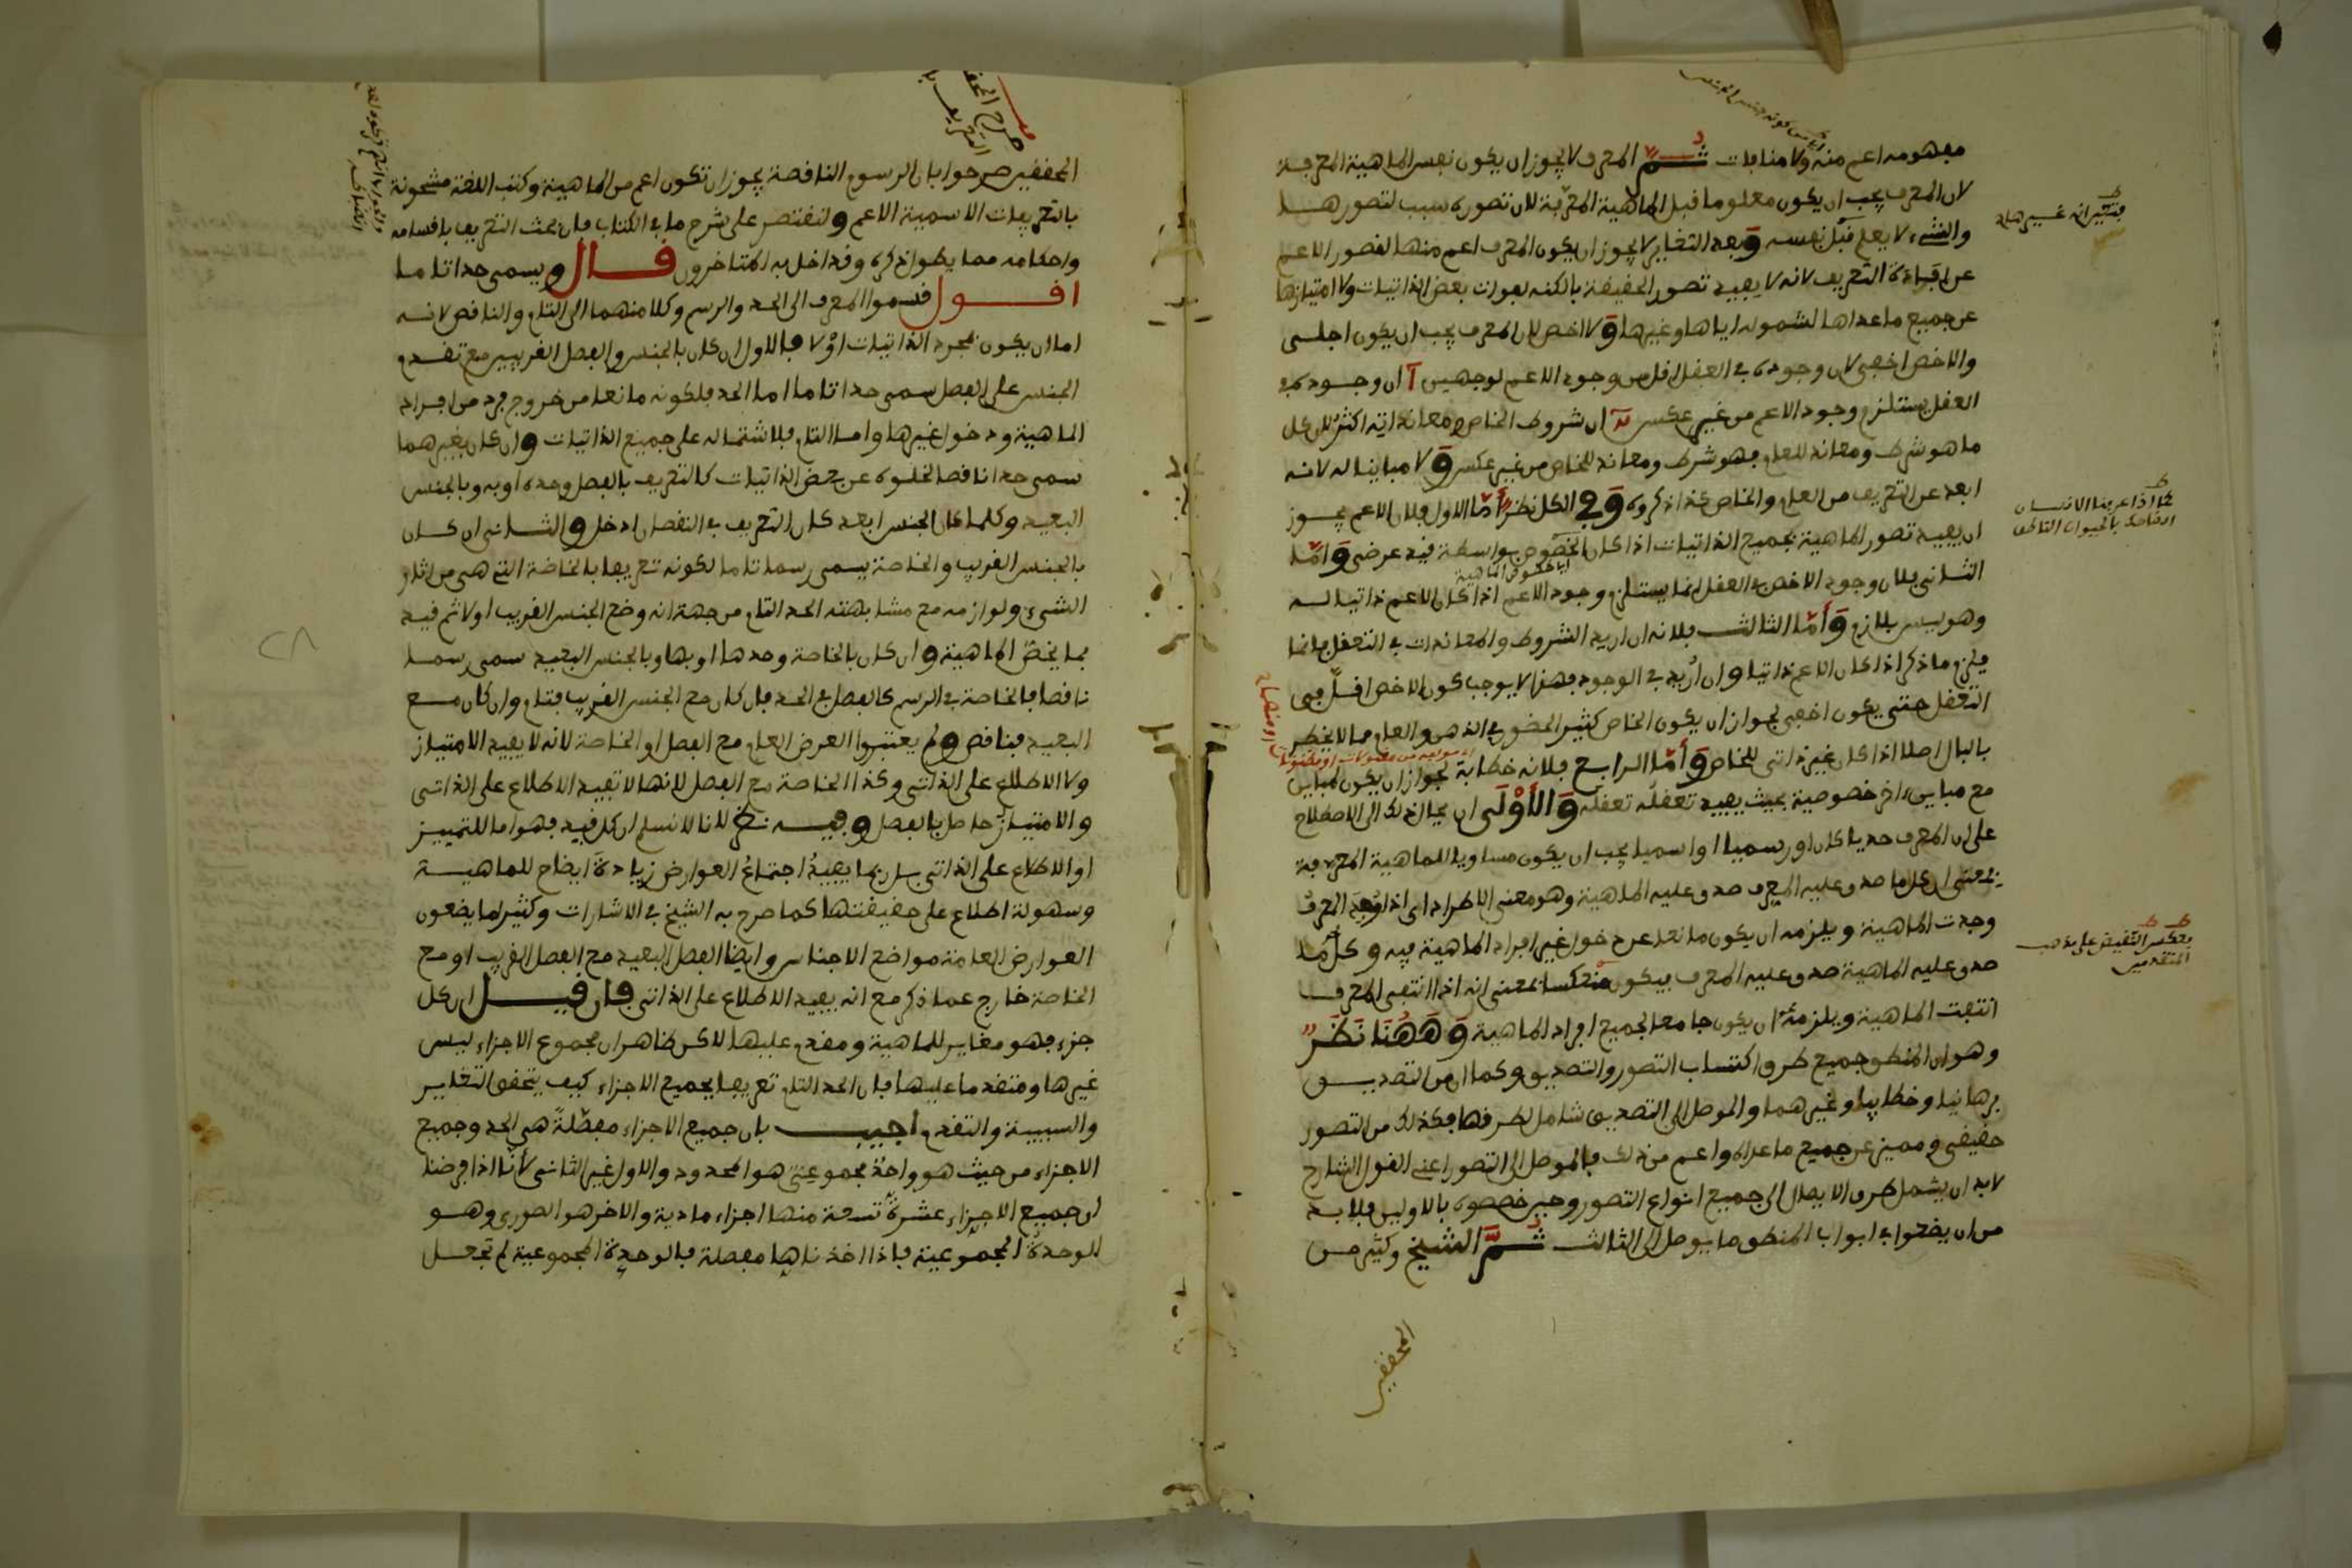 مفهومه اعم منه ولا منافات ثم المعرف لا يجوز ان يكون نفس الماهية المعرفة
لان المعرف يجب ان يكون معلوما قبل الماهية المعرفة لان تصوره سبب لتصورها
والشيء لا يعلم قبل نفسه وبعد التغاير لا يجوز ان يكون المعرف اعم منها لقصور الاعم
عن افادة التعريف لانه لا يفيد تصور الحقيقة بالكنه لفوات بعض الذاتيات ولا امتيازها
عن جميع ما عداها لشموله اياها وغيرها ولا اخص لان المعرف يجب ان يكون اجلى
والاخص اخفى لان وجوده في العقل اقل من وجود الاعم لوجهين آ ان وجوده في
العقل يستلزم وجود الاعم من غير عكس ب ان شروط الخاص ومعانداته اكثر لان كل
ما هو شرط ومعاند للعام فهو شرط ومعاند للخاص من غير عكس ولا مباينا له لانه
ابعد عن التعريف من العام والخاص كذا ذكروه وفي الكل نظر أما الاول فلان الاعم يجوز
ان يفيد تصور الماهية بجميع الذاتيات اذا كان الخصوص بواسطة قيد عرضي وأما
الثاني فلان وجود الاخص في العقل انما يستلزم وجود الاعم اذا كان الاعم ذاتيا له
وهو ليس بلازم وأما الثالث فلانه ان اريد الشروط والمعاندات في التعقل فانما
يلزم ما ذكر اذا كان الاعم ذاتيا وان أريد في الوجود فهذا لا يوجب كون الاخص اقل في
التعقل حتى يكون اخفى لجواز ان يكون الخاص كثير الحضور في الذهن والعام مما لا يخطر
بالبال اصلا اذا كان غير ذاتي للخاص وأما الرابع فلانه خطابة لجواز ان يكون لمباين
مع مباين اخر خصوصية بحيث يفيد تعقله تعقله والأولى ان يحال ذلك الى الاصطلاح
على ان المعرف حديا كان او رسميا او اسميا يجب ان يكون مساويا للماهية المعرفة
بمعنى ان كل ما صدق عليه المعرف صدق عليه الماهية وهو معنى الاطراد اي اذا وجد المعرف
وجدت الماهية ويلزمه ان يكون مانعا عن دخول غير افراد الماهية فيه وكل ما
صدق عليه الماهية صدق عليه المعرف فيكون منعكسا بمعنى انه اذا انتفى المعرف
انتفت الماهية ويلزمه ان يكون جامعا لجميع افراد الماهية وههنا نظر
وهو ان المنطق جميع طرق اكتساب التصور والتصديق وكما ان من التصديق
برهانيا وخطابيا وغيرهما والموصل الى التصديق شامل لطرقها فكذلك من التصور
حقيقي ومميز عن جميع ما عداه واعم من ذلك فالموصل الى التصور اعني القول الشارح
لابد ان يشمل طرق الايصال الى جميع انواع التصور وحين خصصوه بالاولين فلابد
من ان يضعوا في ابواب المنطق ما يوصل الى الثالث ثم الشيخ وكثير من
المحققين
كما اذا عرفنا الانسان
بعكس النقيض على مذهب
المتقدمين
المحققين صرحوا بان الرسوم الناقصة يجوز ان تكون اعم من الماهية وكتب اللغة مشحونة
بالتعريفات الاسمية الاعم ولنقتصر على شرح ما في الكتاب فان بحث التعريف باقسامه
واحكامه مما يطول ذكره وقد اخل به المتاخرون قال ويسمى حدا تاما
اقول قسموا المعرف الى الحد والرسم وكلا منهما الى التام والناقص لانه
اما ان يكون بمجرد الذاتيات اولا فالاول ان كان بالجنس والفصل القريبين مع تقدم
الجنس على الفصل سمى حدا تاما اما الحد فلكونه مانعا من خروج فرد من افراد
الماهية ودخول غيرها واما التام فلاشتماله على جميع الذاتيات وان كان بغيرهما
سمى حدا ناقصا لخلوه عن بعض الذاتيات كالتعريف بالفصل وحده او به وبالجنس
البعيد وكلما كان الجنس ابعد كان التعريف في النقصان ادخل والثاني ان كان
بالجنس القريب والخاصة يسمى رسما تاما لكونه تعريفا بالخاصة التي هي من اثار
الشيء ولوازمه مع مشابهته الحد التام من جهة انه وضع الجنس القريب اولا ثم قيد
بما يخص الماهية وان كان بالخاصة وحدها او بها وبالجنس البعيد سمى رسما
ناقصا فالخاصة في الرسم كالفصل في الحد فان كان مع الجنس القريب فتام وان كان مع
البعيد فناقص ولم يعتبروا العرض العام مع الفصل او الخاصة لانه لا يفيد الامتياز
ولا الاطلاع على الذاتي وكذا الخاصة مع الفصل لانها لا تفيد الاطلاع على الذاتي
والامتياز حاصل بالفصل وفيه نظر لانا لا نسلم ان كل قيد فهو اما للتمييز
او الاطلاع على الذاتي بل ربما يفيد اجتماع العوارض زيادة ايضاح للماهية
وسهولة اطلاع على حقيقتها كما صرح به الشيخ في الاشارات وكثيرا ما يضعون
العوارض العامة مواضع الاجناس وايضا الفصل البعيد مع الفصل القريب او مع
الخاصة خارج عما ذكر مع انه يفيد الاطلاع على الذاتي فان قيل ان كل
جزء فهو مغاير للماهية ومقدم عليها لاكن ظاهر ان مجموع الاجزاء ليس
غيرها ومتقدما عليها فان الحد التام تعريف بجميع الاجزاء كيف يتحقق التغاير
والسببية والتقدم أجيب بان جميع الاجزاء مفصلة هي الحد وجميع
الاجزاء من حيث هو واحد مجموعي هو المحدود والاول غير الثاني لأنا اذا فرضنا
ان جميع الاجزاء عشرة تسعة منها اجزاء مادية والاخر هو الصوري وهو
الوحدة المجموعية فاذا اخذناها مفصلة فالوحدة المجموعية لم تجعل